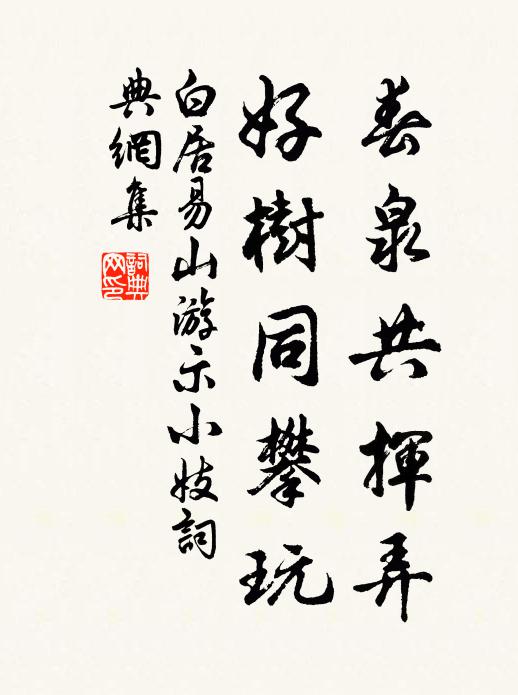 春泉共揮弄
好樹同攀玩
白居易山游示小妓詞
典網集
詞典网印